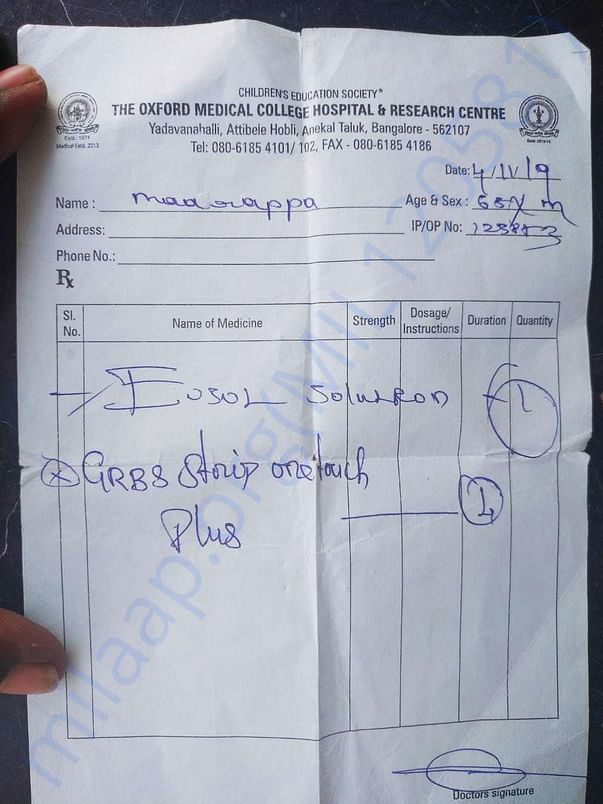 CHILDREN'S EDUCATION SOCIETY®
THE OXFORD MEDICAL COLLEGE HOSPITAL & RESEARCH CENTRE
Yadavanahalli, Attibele Hobli, Anekal Taluk, Bangalore - 562107
Tel: 080-6185 4101/ 102, FAX - 080-6185 4186
Estd. 1974
Medical Estd. 2013
Date: 4/11/19
Name : maarappa Age & Sex : 65y m
Address: IP/OP No:
Phone No.:
Rx
Sl. No. Name of Medicine Strength Dosage/ Instructions Duration Quantity
Eusol Solution 1
GRBS strip one touch 1
Plus
Doctors signature
milaap.org